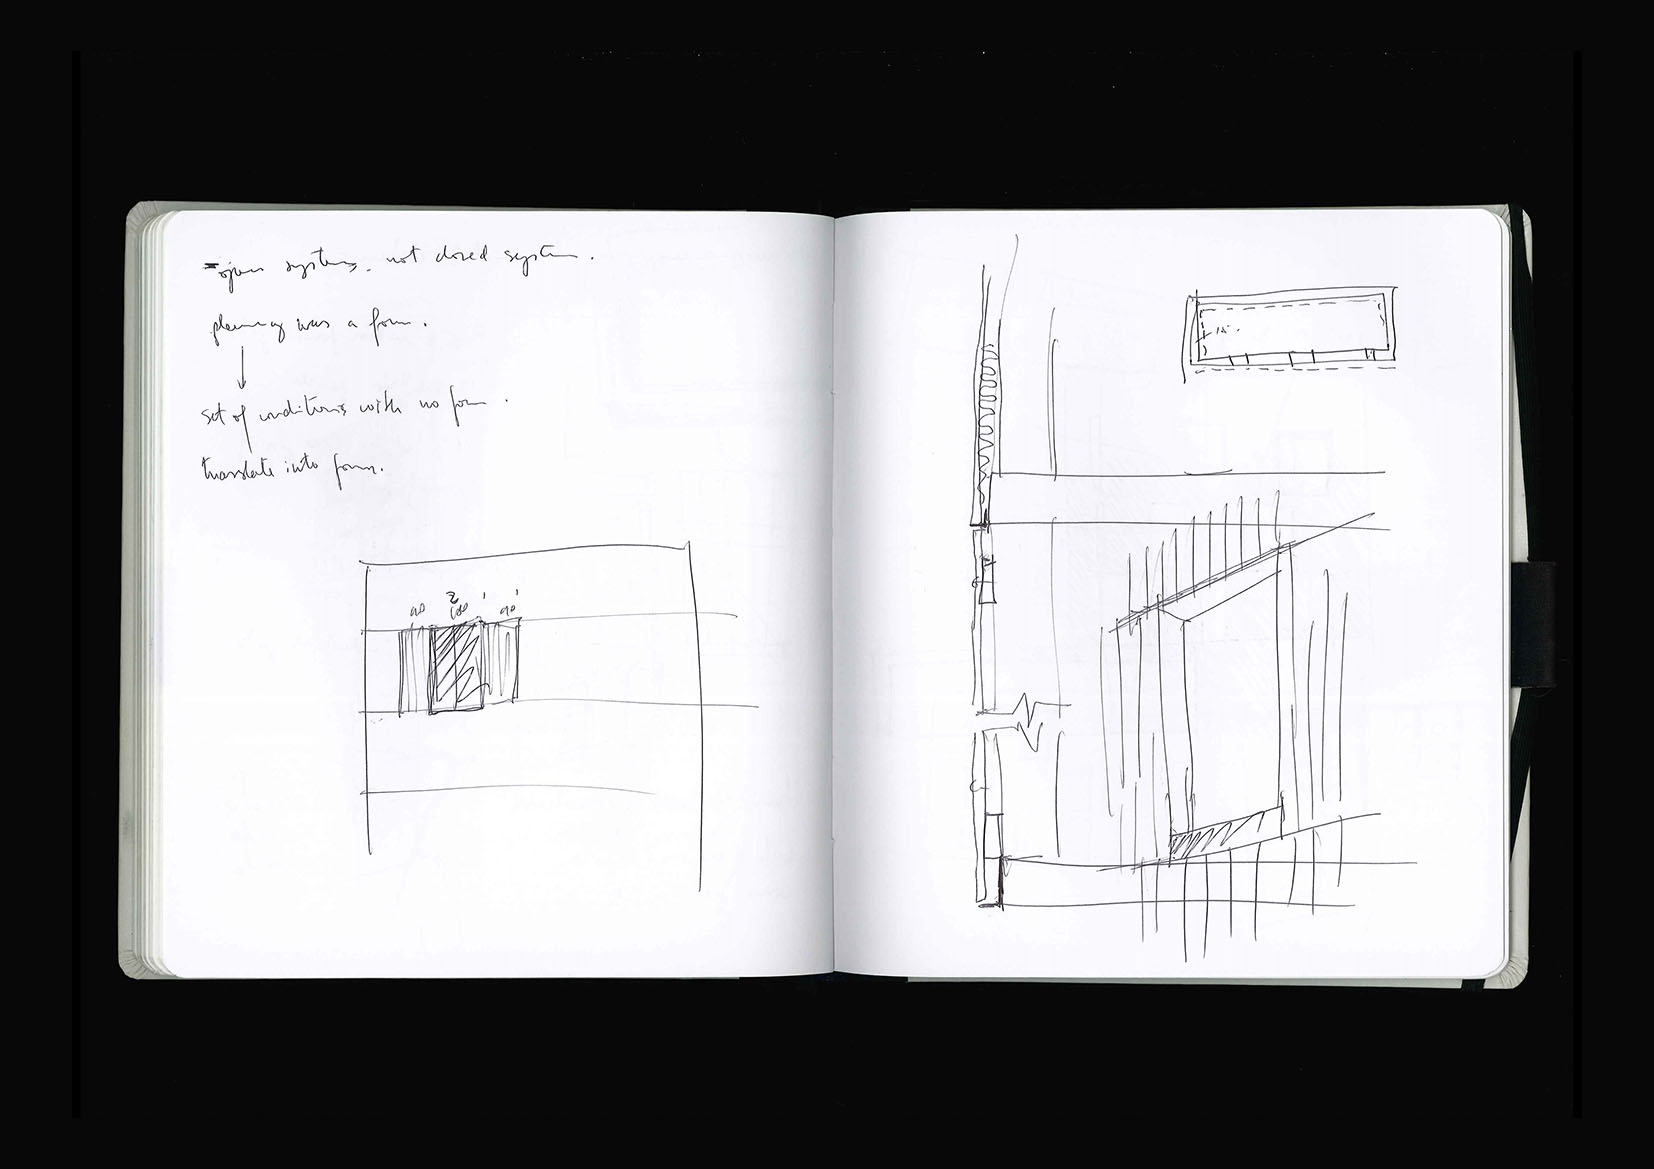 open systems, not closed system.
planning was a form.
set of conditions with no form.
translate into form.
90 2 100 90
15.